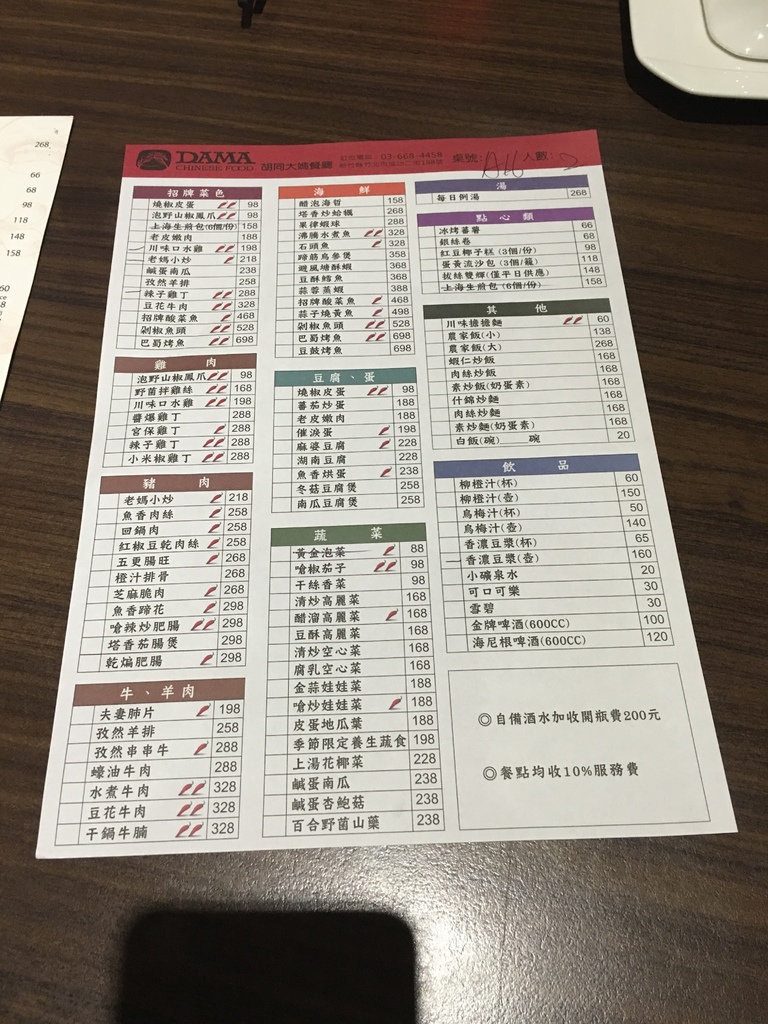 268
66
68
98
118
148
158
DAMA
CHINESE FOOD
胡同大媽餐廳
訂位專線：03-668-4458
桌號：A16 人數：2
招牌菜色
燒椒皮蛋 98
泡野山椒鳳爪 98
上海生煎包(6個/份) 158
老皮嫩肉 188
川味口水雞 198
老媽小炒 218
鹹蛋南瓜 238
孜然羊排 258
辣子雞丁 288
豆花牛肉 328
招牌酸菜魚 468
剁椒魚頭 528
巴蜀烤魚 698
雞肉
泡野山椒鳳爪 98
野菌拌雞絲 168
川味口水雞 198
醬爆雞丁 288
宮保雞丁 288
辣子雞丁 288
小米椒雞丁 288
豬肉
老媽小炒 218
魚香肉絲 258
回鍋肉 258
紅椒豆乾肉絲 258
五更腸旺 268
橙汁排骨 268
芝麻脆肉 268
魚香蹄花 298
嗆辣炒肥腸 298
塔香茄腸煲 298
乾煸肥腸 298
牛、羊肉
夫妻肺片 198
孜然羊排 258
孜然串串牛 288
蠔油牛肉 288
水煮牛肉 328
豆花牛肉 328
干鍋牛腩 328
海鮮
醋泡海哲 158
塔香炒蛤蠣 268
果律蝦球 288
沸騰水煮魚 328
石頭魚 328
蹄筋烏參煲 358
避風塘酥蝦 368
豆酥鱈魚 368
蒜蓉蒸蝦 388
招牌酸菜魚 468
蒜子燒黃魚 498
剁椒魚頭 528
巴蜀烤魚 698
豆鼓烤魚 698
豆腐、蛋
燒椒皮蛋 98
蕃茄炒蛋 188
老皮嫩肉 188
催淚蛋 198
麻婆豆腐 228
湖南豆腐 228
魚香烘蛋 238
冬菇豆腐煲 258
南瓜豆腐煲 258
蔬菜
黃金泡菜 88
嗆椒茄子 98
干絲香菜 98
清炒高麗菜 168
醋溜高麗菜 168
豆酥高麗菜 168
清炒空心菜 168
腐乳空心菜 168
金蒜娃娃菜 188
嗆炒娃娃菜 188
皮蛋地瓜葉 188
季節限定養生蔬食 198
上湯花椰菜 228
鹹蛋南瓜 238
鹹蛋杏鮑菇 238
百合野菌山藥 238
湯
每日例湯 268
點心類
冰烤蕃薯 66
銀絲卷 68
紅豆椰子糕(3個/份) 98
蛋黃流沙包(3個/籠) 118
拔絲雙輝(僅平日供應) 148
上海生煎包(6個/份) 158
其他
川味擔擔麵 60
農家飯(小) 138
農家飯(大) 268
蝦仁炒飯 168
肉絲炒飯 168
素炒飯(奶蛋素) 168
什錦炒麵 168
肉絲炒麵 168
素炒麵(奶蛋素) 168
白飯(碗) 碗 20
飲品
柳橙汁(杯) 60
柳橙汁(壺) 150
烏梅汁(杯) 50
烏梅汁(壺) 140
香濃豆漿(杯) 65
香濃豆漿(壺) 160
小礦泉水 20
可口可樂 30
雪碧 30
金牌啤酒(600CC) 100
海尼根啤酒(600CC) 120
◎自備酒水加收開瓶費200元
◎餐點均收10%服務費